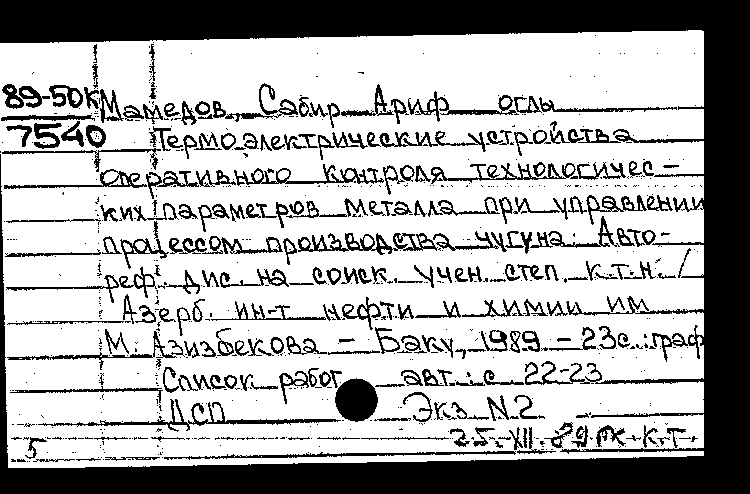 89-50К Мамедов, Сабир Ариф оглы
7540 Термоэлектрические устройства
оперативного контроля технологичес-
ких параметров металла при управлении
процессом производства чугуна: Авто-
реф. дис. на соиск. учен. степ. к.т.н. /
Азерб. ин-т нефти и химии им
М. Азизбекова - Баку, 1989 - 23с.:граф
Список работ авт.: с 22-23
ДСП Экз N2
25.XII.89 К.Т.
5